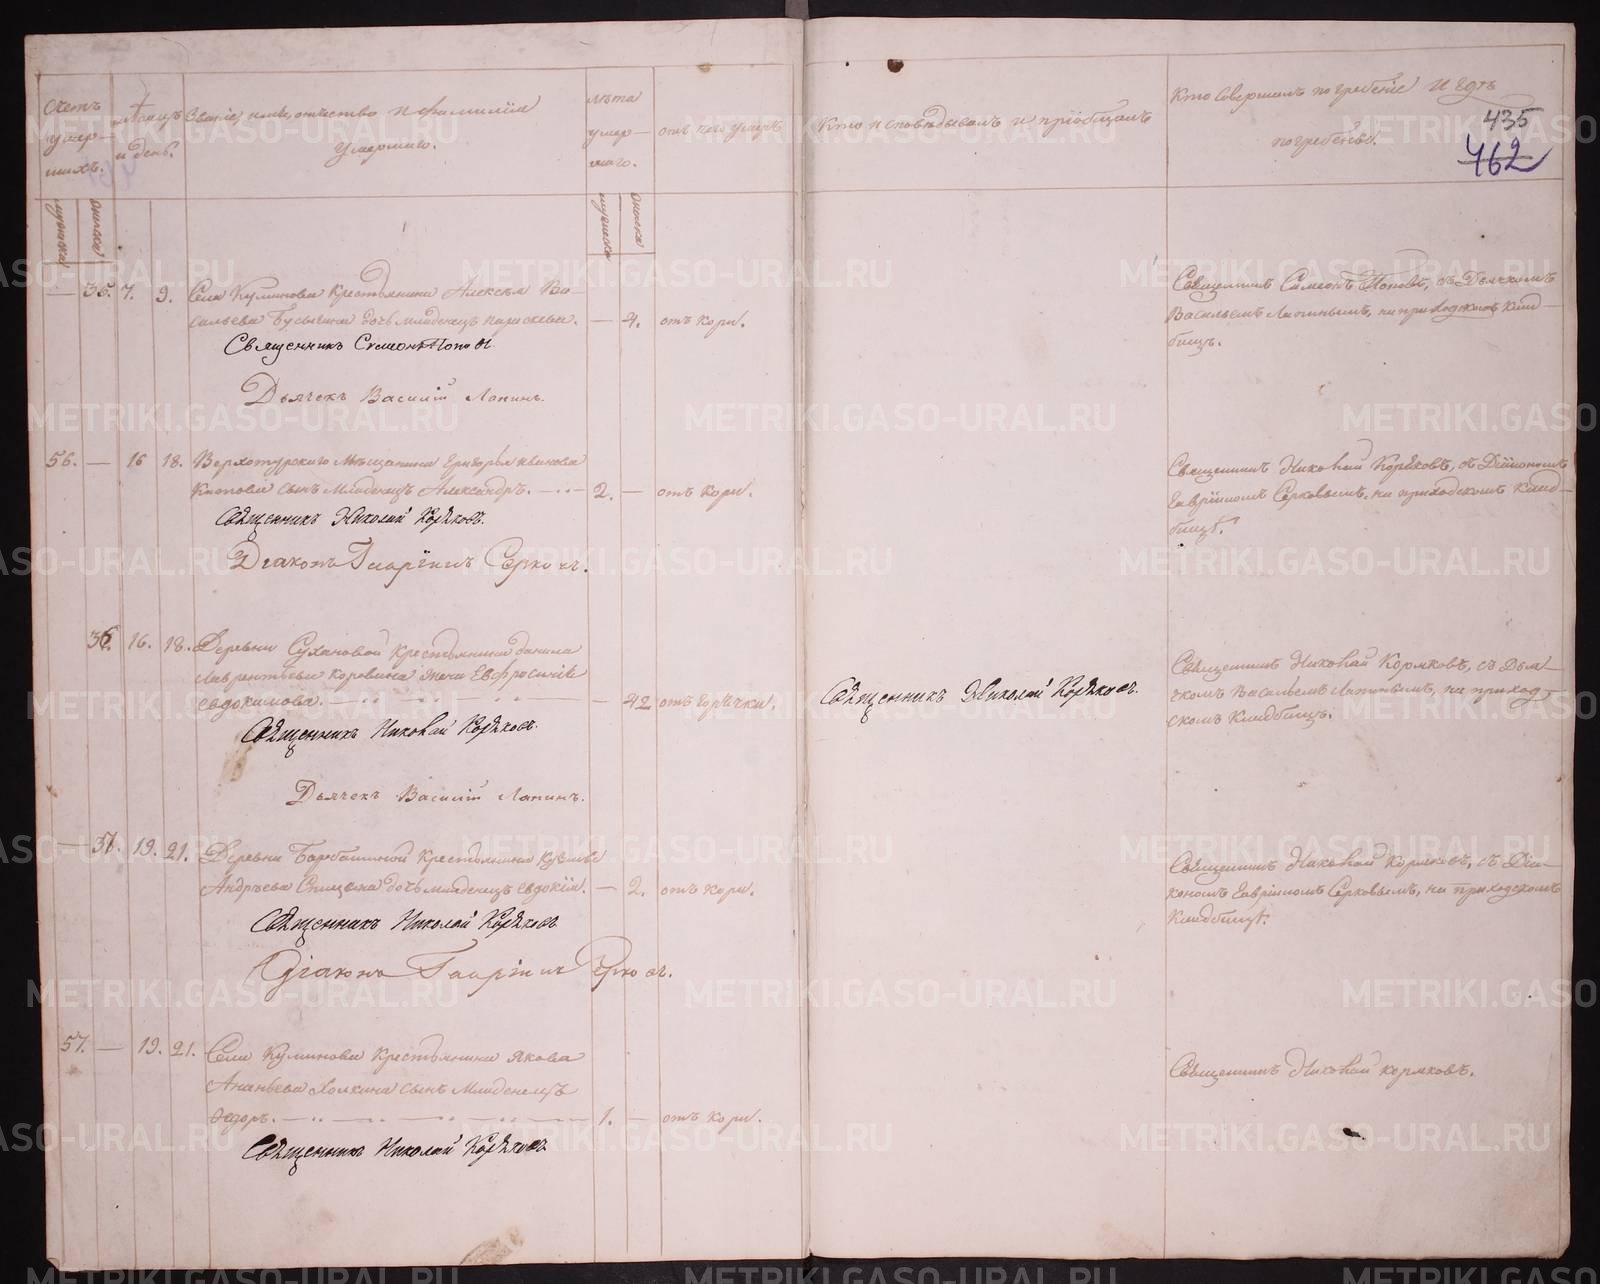 Счетъ умер-
шихъ.
Мѣсяцъ и день.
Званіе, имя, отчество и фамилія
умершаго.
Лѣта
умер-
шаго.
отъ чего умеръ
Кто исповѣдывалъ и пріобщалъ
Кто совершалъ погребеніе и гдѣ
погребены.
435
462
мужеска
женска
мужеска
женска
— 35. 7. 9. Села Куминова Крестьянина Алексѣя Ва-
сильева дочь младенецъ Параскева. — 4. отъ Кори.
Священникъ Симеонъ Поповъ
Дьячекъ Василій Лапинъ.
Священникъ Симеонъ Поповъ, съ Дьячкомъ
Васильемъ Лапинымъ, на приходскомъ клад-
бищѣ.
56. — 16 18. Верхотурскаго Мѣщанина Григорья Иванова
сынъ Младенецъ Александръ. — 2. — отъ Кори.
Священникъ Николай Коряковъ.
Діаконъ Гавріилъ Серковъ.
Священникъ Николай Коряковъ, съ Діакономъ
Гавріиломъ Серковымъ, на приходскомъ клад-
бищѣ.
36. 16. 18. Деревни Сухановой Крестьянина Данила
Лаврентьева Коровина жена Евфросинія
Евдокимова. — 42 отъ горячки.
Священникъ Николай Коряковъ.
Дьячекъ Василій Лапинъ.
Священникъ Николай Коряковъ.
Священникъ Николай Коряковъ, съ Дья-
чкомъ Васильемъ Лапинымъ, на приход-
скомъ Кладбищѣ.
— 37. 19. 21. Деревни Крестьянина Кузьмы
Андрѣева Спицына дочь младенецъ Евдокія. — 2. отъ Кори.
Священникъ Николай Коряковъ
Діаконъ Гавріилъ Серковъ.
Священникъ Николай Коряковъ, съ Діа-
кономъ Гавріиломъ Серковымъ, на приходскомъ
Кладбищѣ.
57. — 19. 21. Села Куминова Крестьянина Якова
Ананьева Холкина сынъ Младенецъ
Ѳедоръ. — 1. — отъ Кори.
Священникъ Николай Коряковъ
Священникъ Николай Коряковъ.
METRIKI.GASO-URAL.RU